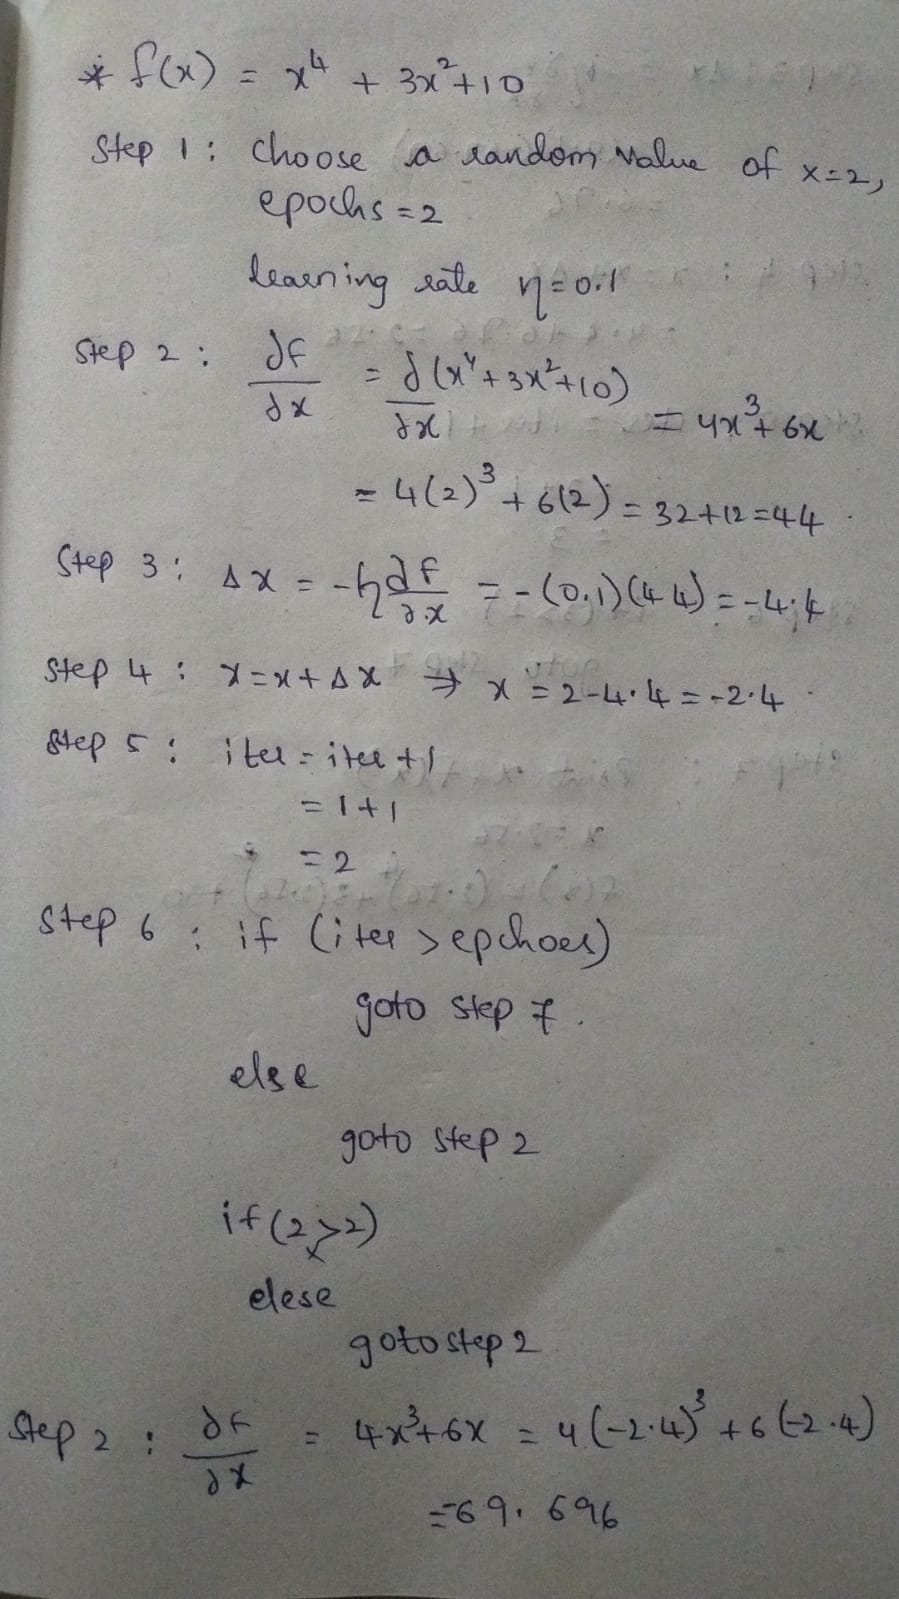 * f(x) = x⁴ + 3x²+10
Step 1 : choose a random value of x=2,
epochs = 2
learning rate η=0.1
Step 2 : ∂f/∂x = ∂(x⁴+3x²+10)/∂x = 4x³+6x
= 4(2)³+6(2) = 32+12=44.
Step 3 : Δx = -η∂f/∂x = -(0.1)(44) = -4.4
Step 4 : x=x+Δx ⇒ x = 2-4.4 = -2.4.
Step 5 : iter = iter +1
= 1+1
= 2
Step 6 : if (iter > epchoes)
goto step 7.
else
goto step 2
if(2>2)
x
elese
goto step 2
Step 2 : ∂f/∂x = 4x³+6x = 4(-2.4)³+6(-2.4)
=-69.696